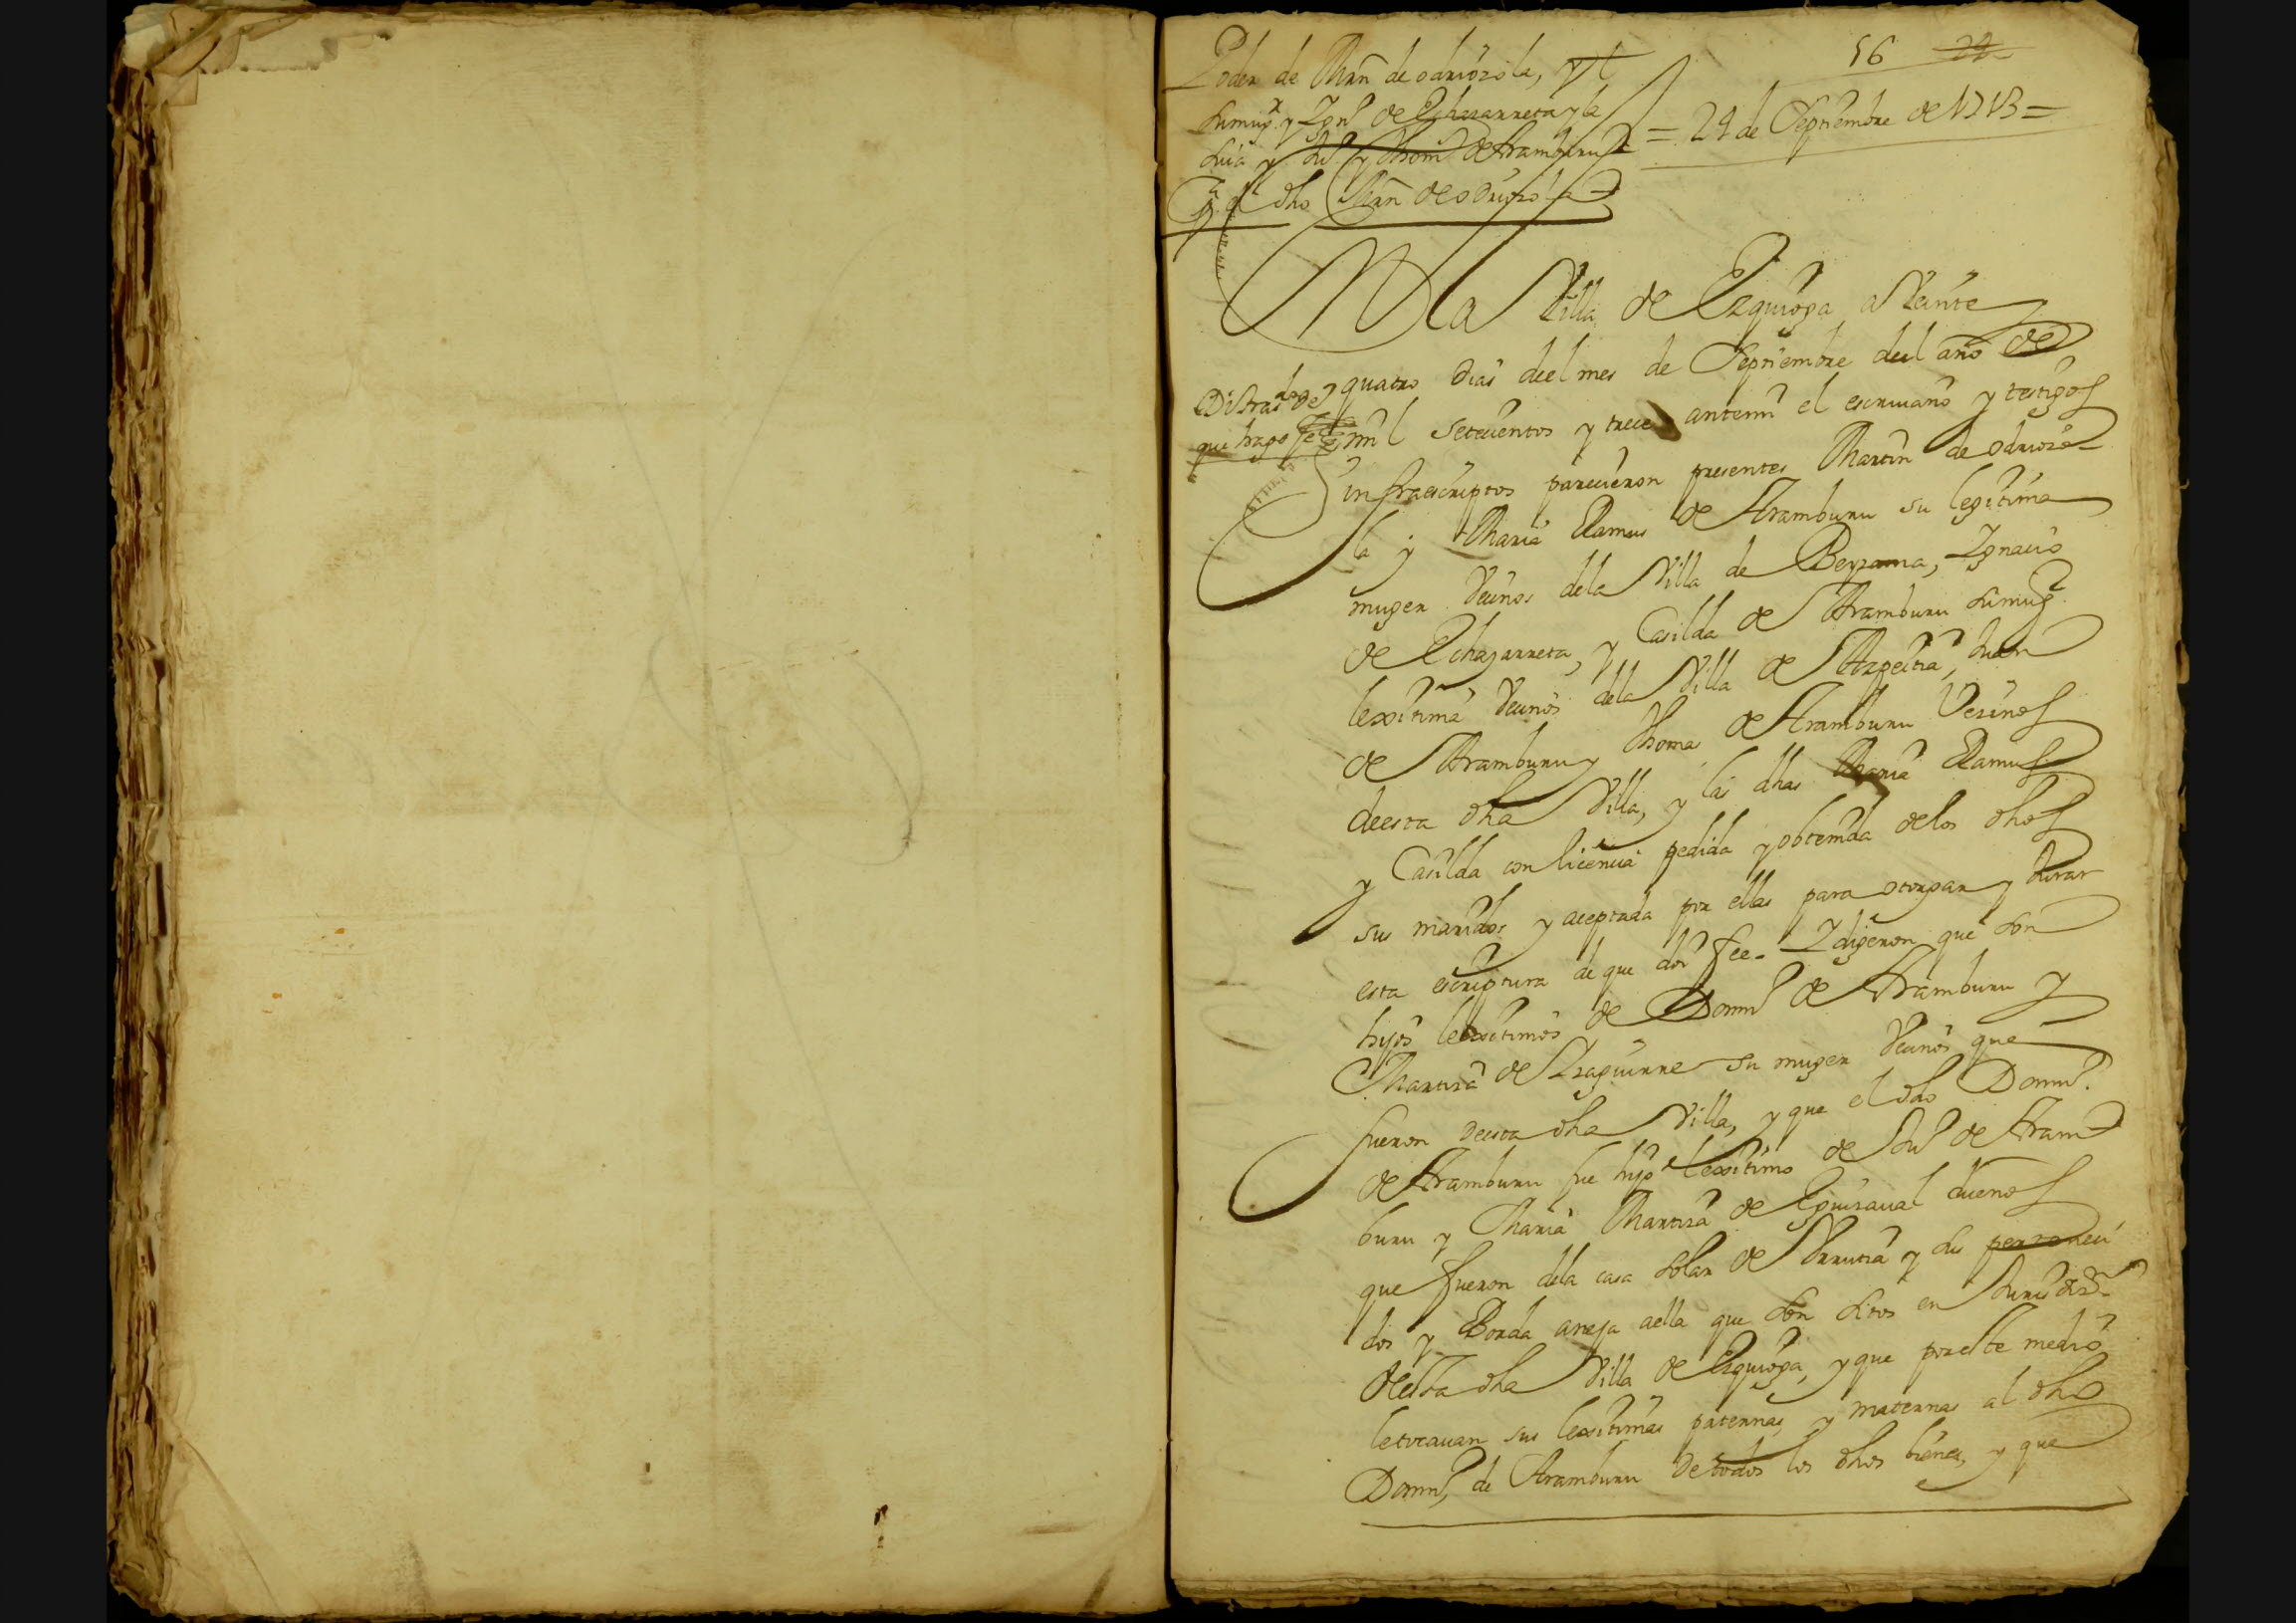 Poder de Mrn de odriozola, y
sumugr y Ign.º de Echazarreta y la
suia y Ju.º y Thom.s de Aramburu
a el dho Mrn de Odriozola
56 22
= 24 de Septiembre de 1713 =
En la Villa de Ezquioga a Veinte
quatro dias deel mes de Septiembre deel año de
Di tras.do de
que hago fee
mil setecientos y trece antemi el escriuano y testigos
infraescriptos parecieron presentes Martin de odriozo-
la y Maria Ramus de Aramburu su legitima
muger Vecinos dela Villa de Beyzama, Ignacio
de Echazarreta, y Casilda de Aramburu sumugr
lexitima Vecinos dela Villa de Azpeitia, Juan
de Aramburu y Thomas de Aramburu Vezinos
deesta dha Villa, y las dhas Maria Ramus
y Casilda con licencia pedida y obtenida delos dhos
sus maridos y aceptada por ellas para otorgar y Jurar
esta escriptura de que doi fee. Y digeron que son
hijos lexitimos de Domin.º de Aramburu y
Martija de Izaguirre su muger Vecinos que
fueron deesta dha Villa, y que el dho Domin.º
de Aramburu fue hijo lexitimo de Ju.º de Aram
buru y Maria Martija de Eguizaual dueños
que fueron dela casa solar de Urrutia y sus perteneci
dos y Borda aneja aella que son sitos en Jurisdiz.on
deesta dha Villa de Ezquioga, y que poreste medio
letocauan sus lexitimas paternas, y maternas al dho
Domin.º de Aramburu detodos los dhos bienes, y que